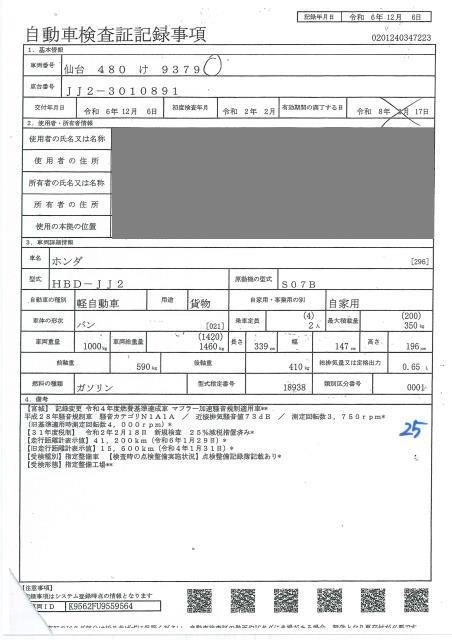 記録年月日 令和 6年12月 6日
自動車検査証記録事項
0201240347223
1．基本情報
車両番号 仙台 480 け 9379
車台番号 JJ2-3010891
交付年月日 令和 6年12月 6日 初度検査年月 令和 2年 2月 有効期間の満了する日 令和 8年 2月 17日
2．使用者・所有者情報
使用者の氏名又は名称
使用者の住所
所有者の氏名又は名称
所有者の住所
使用の本拠の位置
3．車両詳細情報
車名 ホンダ [296]
型式 HBD-JJ2 原動機の型式 S07B
自動車の種別 軽自動車 用途 貨物 自家用・事業用の別 自家用
車体の形状 バン [021] 乗車定員 (4) 2人 最大積載量 (200) 350kg
車両重量 1000kg 車両総重量 (1420) 1460kg 長さ 339cm 幅 147cm 高さ 196cm
前軸重 590kg 後軸重 410kg 総排気量又は定格出力 0.65 L
燃料の種類 ガソリン 型式指定番号 18938 類別区分番号 0001
4．備考
【宮城】 記録変更 令和4年度燃費基準達成車 マフラー加速騒音規制適用車**
平成28年騒音規制車 騒音カテゴリN1A1A ／ 近接排気騒音値73dB ／ 測定回転数3，750rpm*
(旧基準適用時測定回転数4，000rpm)*
【31年度税制】 令和2年2月18日 新規検査 25%減税措置済み*
【走行距離計表示値】41，200km（令和6年1月29日）*
【旧走行距離計表示値】15，600km（令和4年1月31日）*
【受検種別】指定整備車 【検査時の点検整備実施状況】点検整備記録簿記載あり*
【受検形態】指定整備工場**
25
[注意事項]
記録事項はシステム登録時点の情報となります
車両ID K9562FU9559564